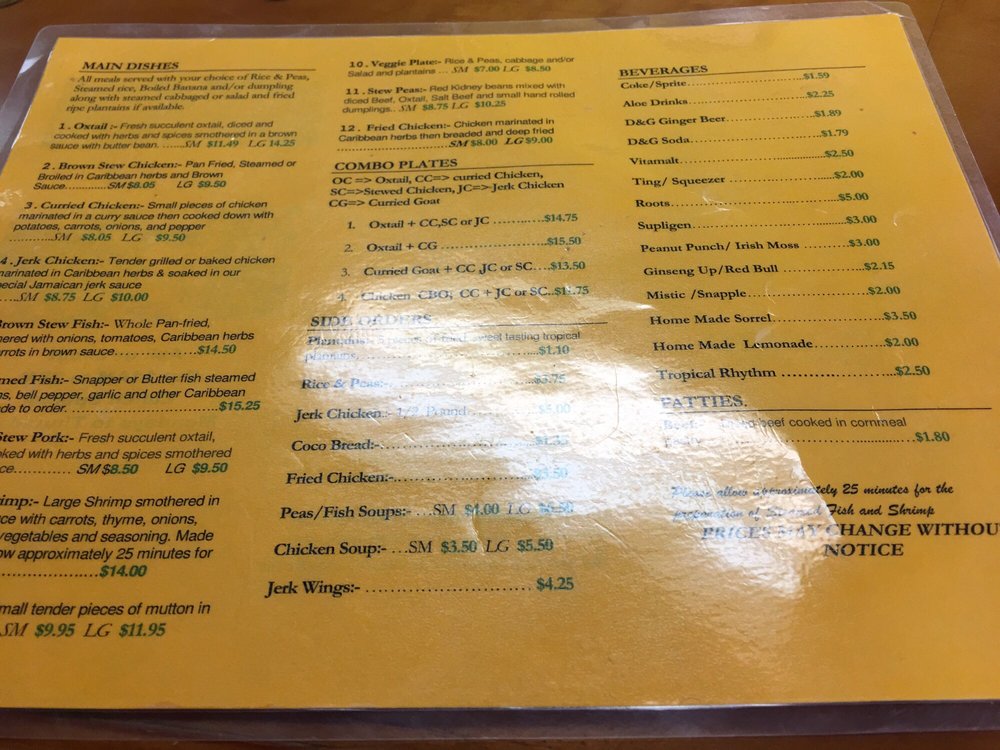 MAIN DISHES
All meals served with your choice of Rice & Peas,
Steamed rice, Boiled Banana and/or dumpling
along with steamed cabbaged or salad and fried
ripe plantains if available.
1. Oxtail :- Fresh succulent oxtail, diced and
cooked with herbs and spices smothered in a brown
sauce with butter bean. .......SM $11.49 LG 14.25
2. Brown Stew Chicken:- Pan Fried, Steamed or
Broiled in Caribbean herbs and Brown
Sauce.............SM $8.05 LG $9.50
3. Curried Chicken:- Small pieces of chicken
marinated in a curry sauce then cooked down with
potatoes, carrots, onions, and pepper
............SM $8.05 LG $9.50
4. Jerk Chicken:- Tender grilled or baked chicken
marinated in Caribbean herbs & soaked in our
special Jamaican jerk sauce
.....SM $8.75 LG $10.00
Brown Stew Fish:- Whole Pan-fried,
hered with onions, tomatoes, Caribbean herbs
rrots in brown sauce...................$14.50
med Fish:- Snapper or Butter fish steamed
ns, bell pepper, garlic and other Caribbean
de to order. ..............................$15.25
Stew Pork:- Fresh succulent oxtail,
oked with herbs and spices smothered
ce............ SM $8.50 LG $9.50
rimp:- Large Shrimp smothered in
ce with carrots, thyme, onions,
vegetables and seasoning. Made
ow approximately 25 minutes for
...................$14.00
mall tender pieces of mutton in
SM $9.95 LG $11.95
10. Veggie Plate:- Rice & Peas, cabbage and/or
Salad and plantains ... SM $7.00 LG $8.50
11. Stew Peas:- Red Kidney beans mixed with
diced Beef, Oxtail, Salt Beef and small hand rolled
dumplings.. SM $8.75 LG $10.25
12. Fried Chicken:- Chicken marinated in
Caribbean herbs then breaded and deep fried
.............................SM $8.00 LG $9.00
COMBO PLATES
OC => Oxtail, CC=> curried Chicken,
SC=>Stewed Chicken, JC=>Jerk Chicken
CG=> Curried Goat
1. Oxtail + CC,SC or JC ............$14.75
2. Oxtail + CG .........................$15.50
3. Curried Goat + CC JC or SC....$13.50
4. Chicken CBO; CC + JC or SC..$11.75
SIDE ORDERS
Plantains:- 5 pieces of fried, sweet tasting tropical
plantains, ..............................$1.10
Rice & Peas:-..........................$3.75
Jerk Chicken:- 1/2 Pound............$5.00
Coco Bread:-...........................$1.35
Fried Chicken:-........................$3.50
Peas/Fish Soups:- ...SM $4.00 LG
Chicken Soup:- ...SM $3.50 LG $5.50
Jerk Wings:- ..............................$4.25
BEVERAGES
Coke/Sprite..............................$1.59
Aloe Drinks..............................$2.25
D&G Ginger Beer......................$1.89
D&G Soda..............................$1.79
Vitamalt.................................$2.50
Ting/ Squeezer ........................$2.00
Roots.....................................$5.00
Supligen.................................$3.00
Peanut Punch/ Irish Moss ..........$3.00
Ginseng Up/Red Bull .................$2.15
Mistic /Snapple.........................$2.00
Home Made Sorrel.....................$3.50
Home Made Lemonade...............$2.00
Tropical Rhythm .......................$2.50
PATTIES.
Beef:- beef cooked in cornmeal
......................................$1.80
Please allow approximately 25 minutes for the
preparation of Steamed Fish and Shrimp
PRICES MAY CHANGE WITHOU
NOTICE